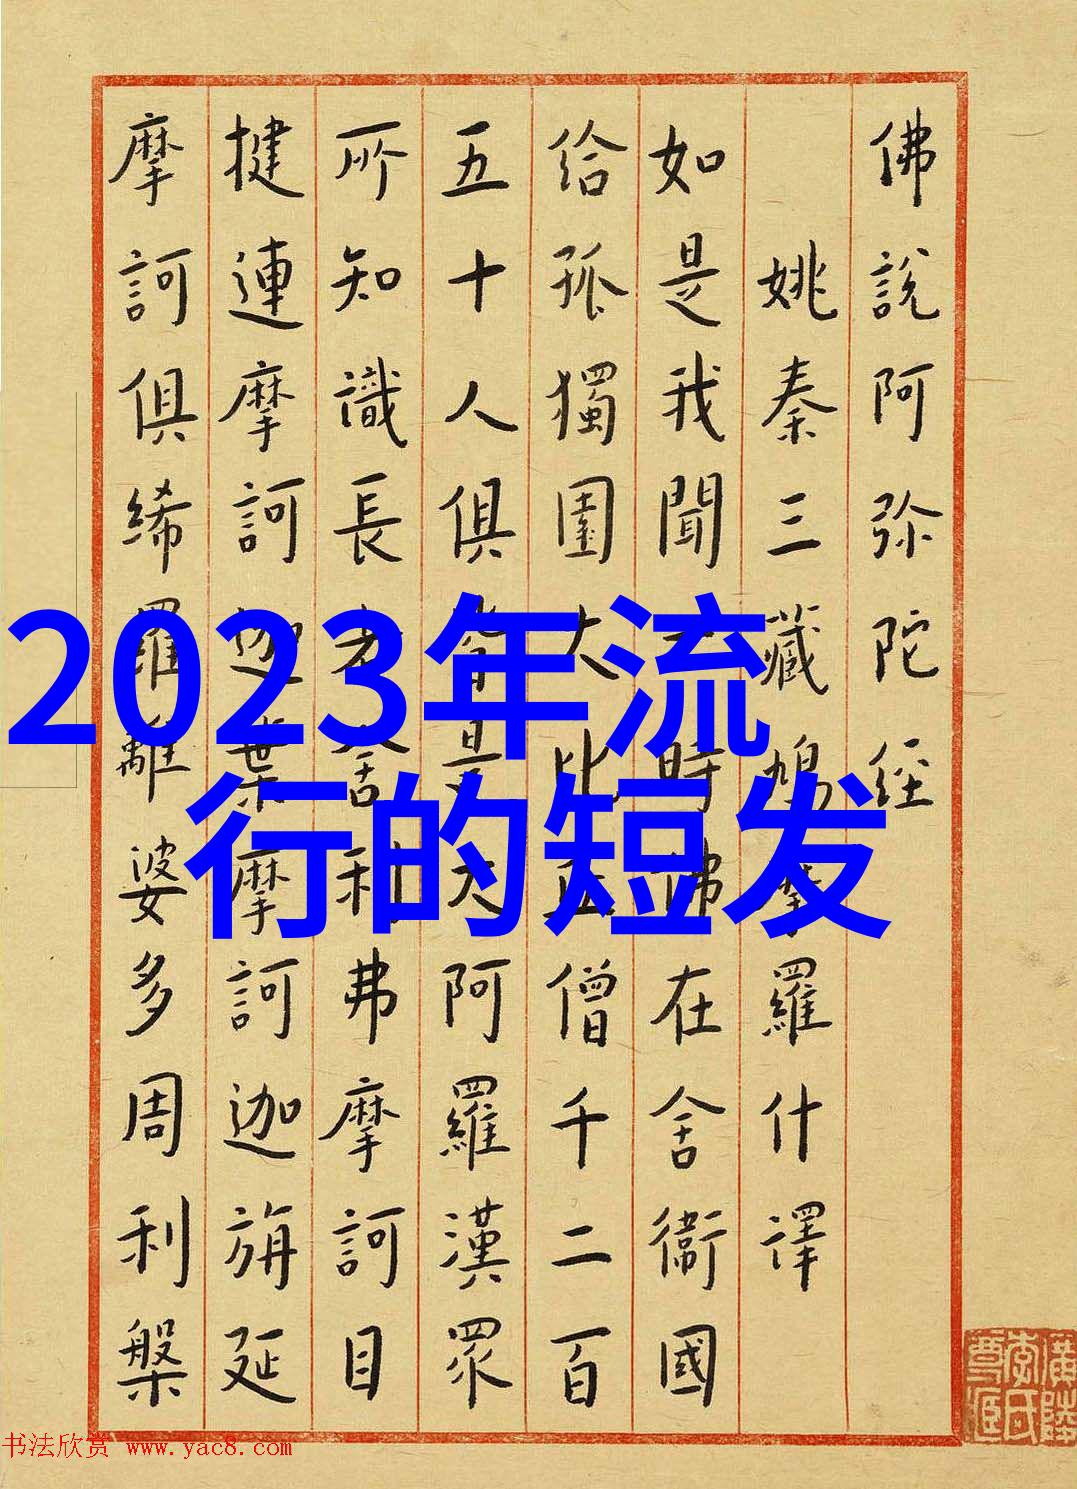 佛說阿弥陀經
姚秦三藏鳩摩羅什譯
如是我聞一時佛在舍衛國
給孤獨園大比丘僧千二百
五十人俱皆是大阿羅漢眾
所知識長老舍利弗摩訶目
揵連摩訶迦葉摩訶迦旃延
摩訶俱絺羅離婆多周利槃
2023年流
行的短发
书法欣赏 www.yac8.com